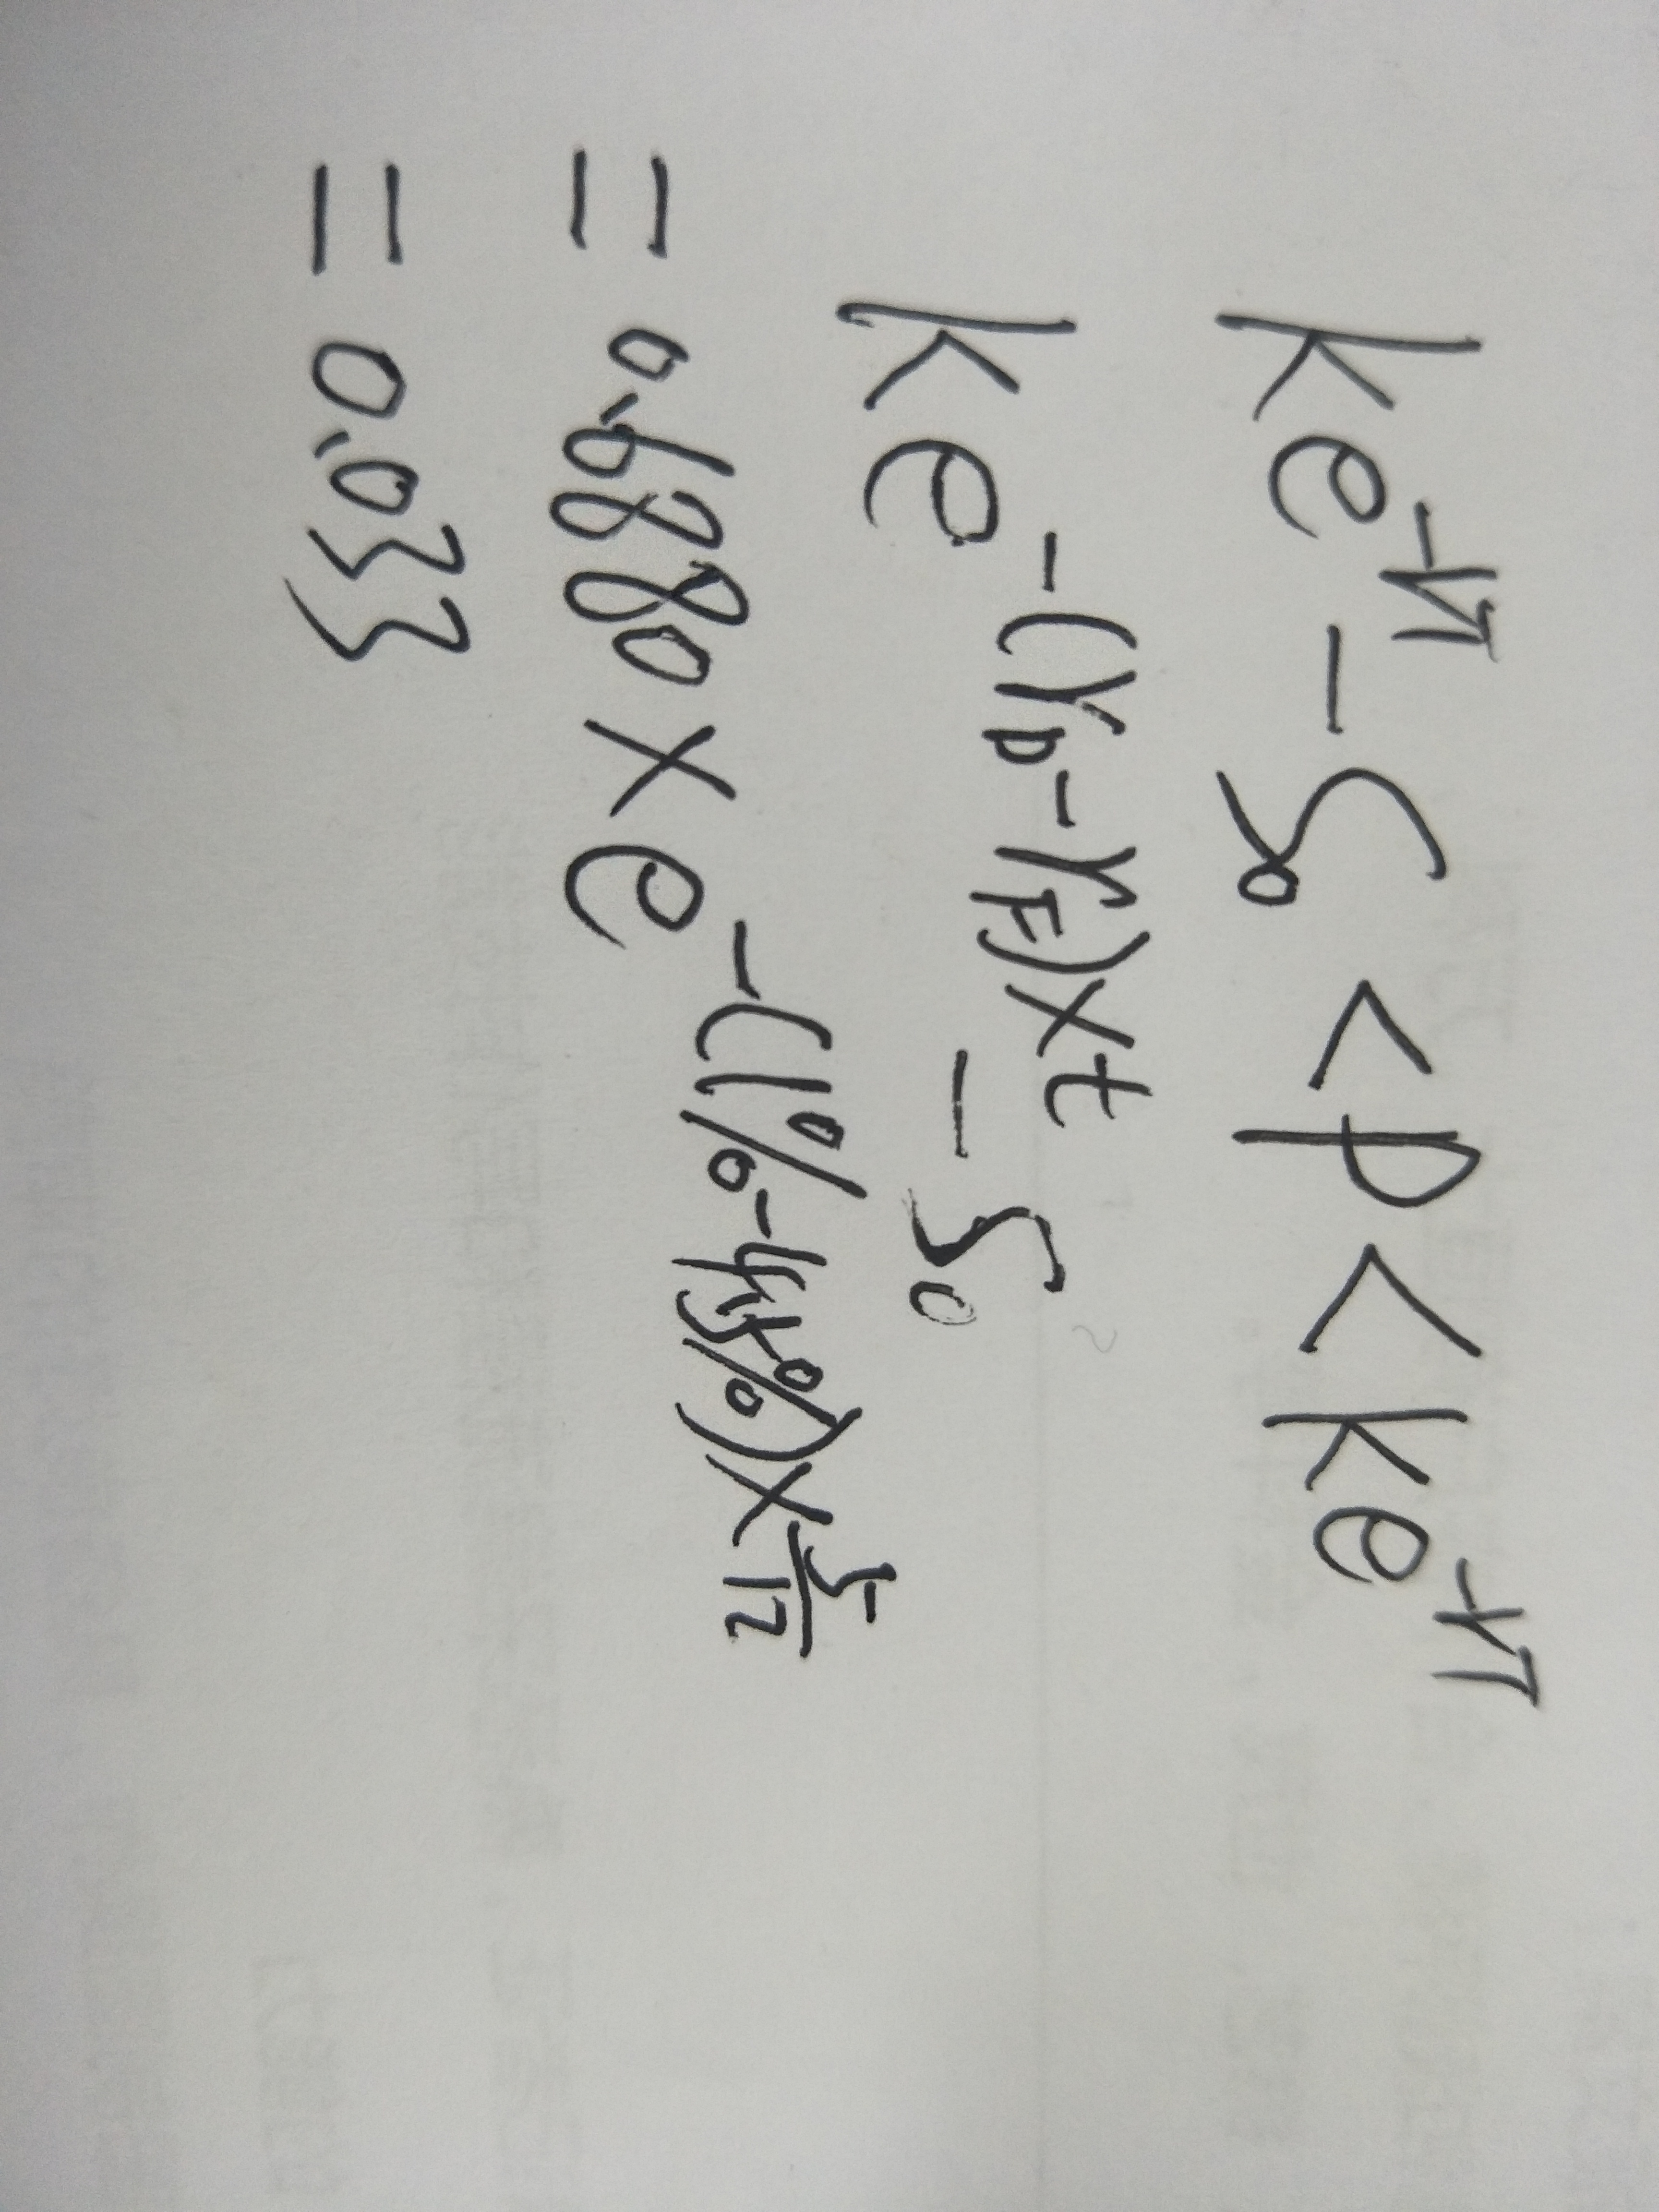 ke^{-rT} - S₀ < p < ke^{-rT}
ke^{-(r_D - r_F)×t} - S₀
= 0.6880 × e^{-(1% - 4.5%)×5/12}
= 0.033